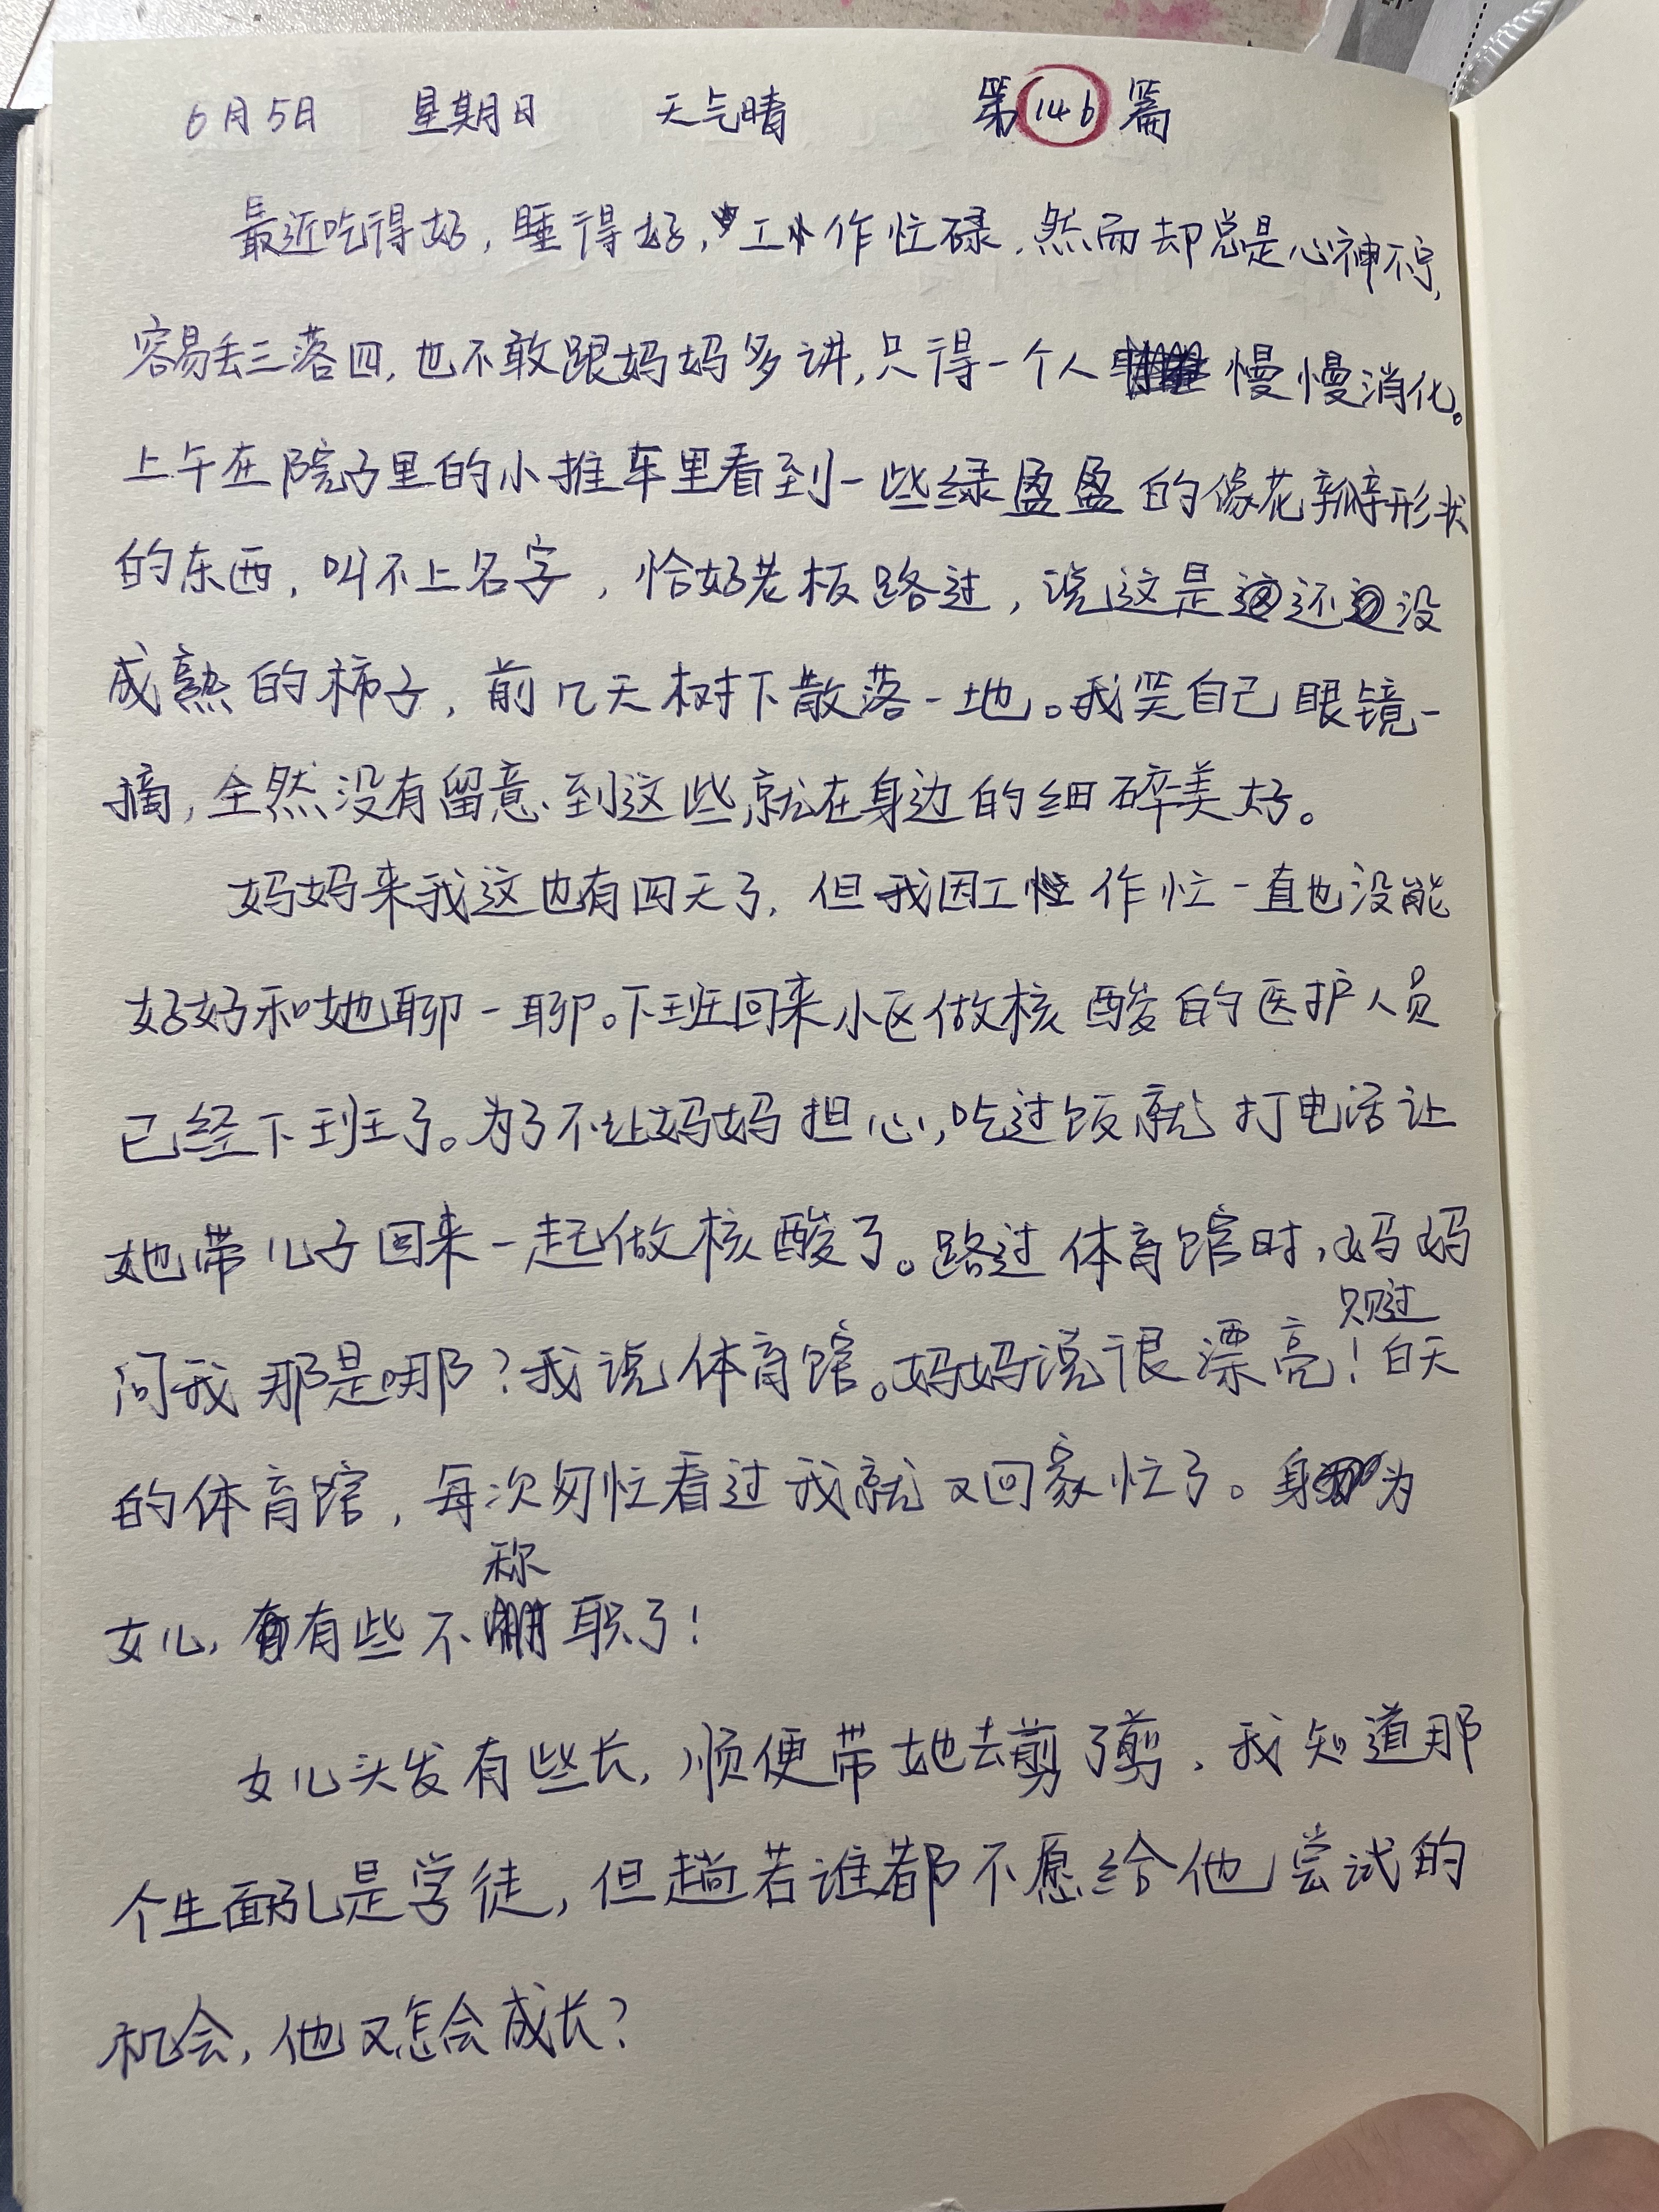 6月5日 星期日 天气晴 第146篇
最近吃得好,睡得好,工作忙碌,然而却总是心神不宁,
容易丢三落四,也不敢跟妈妈多讲,只得一个人慢慢消化。
上午在院子里的小推车里看到一些绿盈盈的像花瓣形状
的东西,叫不上名字,恰好老板路过,说这是还没
成熟的柿子,前几天树下散落一地。我笑自己眼镜一
摘,全然没有留意到这些就在身边的细碎美好。
妈妈来我这也有四天了,但我因工作忙一直也没能
好好和她聊一聊。下班回来小区做核酸的医护人员
已经下班了。为了不让妈妈担心,吃过饭就打电话让
她带儿子回来一起做核酸了。路过体育馆时,妈妈
问我那是哪?我说体育馆。妈妈说很漂亮!只见过白天
的体育馆,每次匆忙看过我就又回家忙了。身为
女儿,有些不称职了!
女儿头发有些长,顺便带她去剪了剪,我知道那
个生面孔是学徒,但趟若谁都不愿给他尝试的
机会,他又怎会成长?